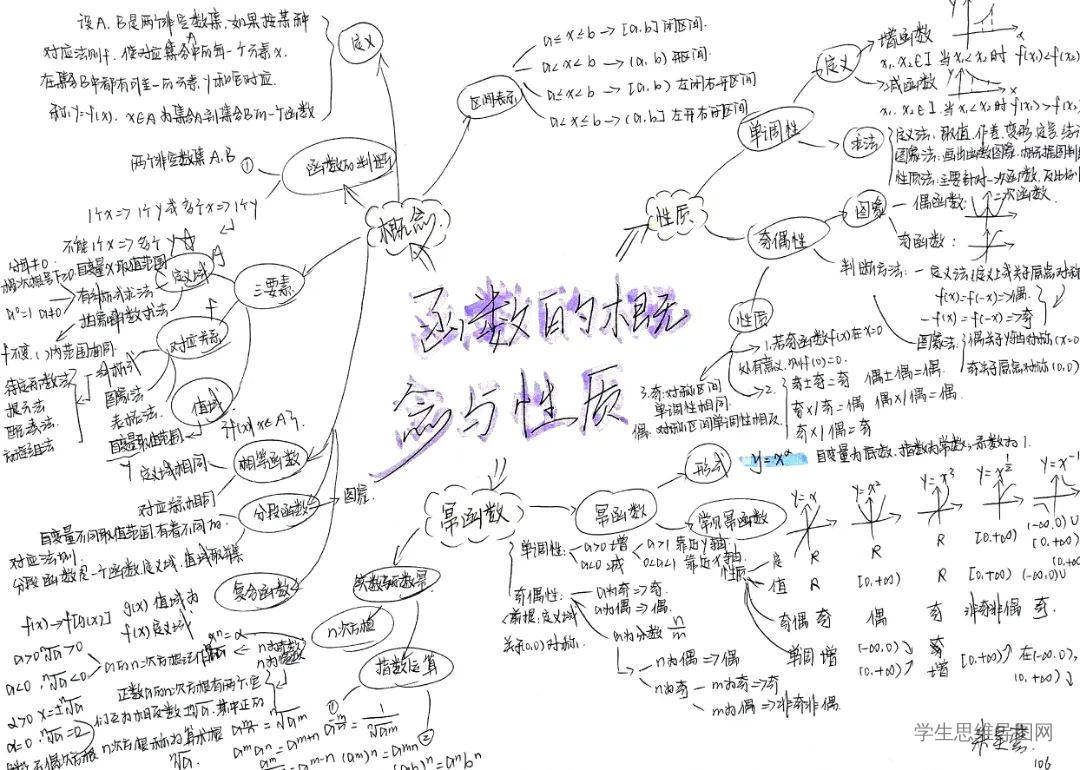 函数的概
念与性质
概念
定义
设A、B是两个非空数集,如果按某种
对应法则f,使对应集合A中的每一个元素x,
在集合B中都有唯一的元素y和它对应,
称y=f(x),x∈A为集合A到集合B的一个函数
区间表示
a≤x≤b→[a,b]闭区间
a<x<b→(a,b)开区间
a≤x<b→[a,b)左闭右开区间
a<x≤b→(a,b]左开右闭区间
函数的判断
两个非空数集A,B
①
1个x=>1个y或多个x=>1个y
不能1个x=>多个y
三要素
定义域
自变量x取值范围
分母≠0
a⁰=1 a≠0
有解析式求法
抽象函数求法
f不变,()内范围相同
对应关系
f
解析式
图象法
表格法
待定系数法
换元法
配凑法
方程组法
值域
{f(x)|x∈A}
相等函数
定义域相同
对应关系相同
分段函数
图象
自变量不同取值范围有着不同的
对应法则
分段函数是一个函数定义域,值域取并集
复合函数
f(x)→f[g(x)]
g(x)值域为
f(x)定义域
性质
单调性
定义
增函数
x₁,x₂∈I 当x₁<x₂时 f(x₁)<f(x₂)
减函数
x₁,x₂∈I 当x₁<x₂时 f(x₁)>f(x₂)
求法
定义法:取值,作差,变形,定号,结论
图象法:画出函数图象
性质法:主要针对一次函数,
奇偶性
图象
偶函数:
二次函数
奇函数:
判断方法:
定义法(定义域关于原点对称
f(x)=f(-x)=>偶
-f(x)=f(-x)=>奇
图象法:
偶关于y轴对称(x=0)
奇关于原点对称(0,0)
性质
1.若奇函数f(x)在x=0
处有意义,则f(0)=0.
2.
奇±奇=奇 偶±偶=偶
奇×/奇=偶 偶×/偶=偶
奇×/偶=奇
3.奇:对称区间
单调性相同
偶:对称区间单调性相反
幂函数
幂函数
形式
y=x^α
自变量为底数,指数为常数,系数为1.
常见幂函数
y=x y=x² y=x³ y=x^½ y=x⁻¹
性质
定 R R R [0,+∞) (-∞,0)∪(0,+∞)
值 R [0,+∞) R [0,+∞) (-∞,0)∪(0,+∞)
奇偶 奇 偶 奇 非奇非偶 奇
单调 增 (-∞,0)↘ (0,+∞)↗ 增 [0,+∞)↗ 在(-∞,0),(0,+∞)↘
单调性:
a>0增
a<0减
a>1靠近y轴
0<a<1靠近x轴
奇偶性:
前提:定义域
关于(0,0)对称.
a为奇=>奇.
a为偶=>偶.
a为分数 n/m
n为偶=>偶
n为奇
m为奇=>奇
m为偶=>非奇非偶.
实数指数幂
n次方根
xⁿ=a
n为奇数
n为偶数
a>0 ⁿ√a>0
a<0,ⁿ√a<0
a>0 x=±ⁿ√a
a=0,ⁿ√a=0
正数a的n次方根有两个,它
们互为相反数±ⁿ√a,其中正的
n次方根称为算术根
ⁿ√a
指数运算
①
②
学生思维导图网
106